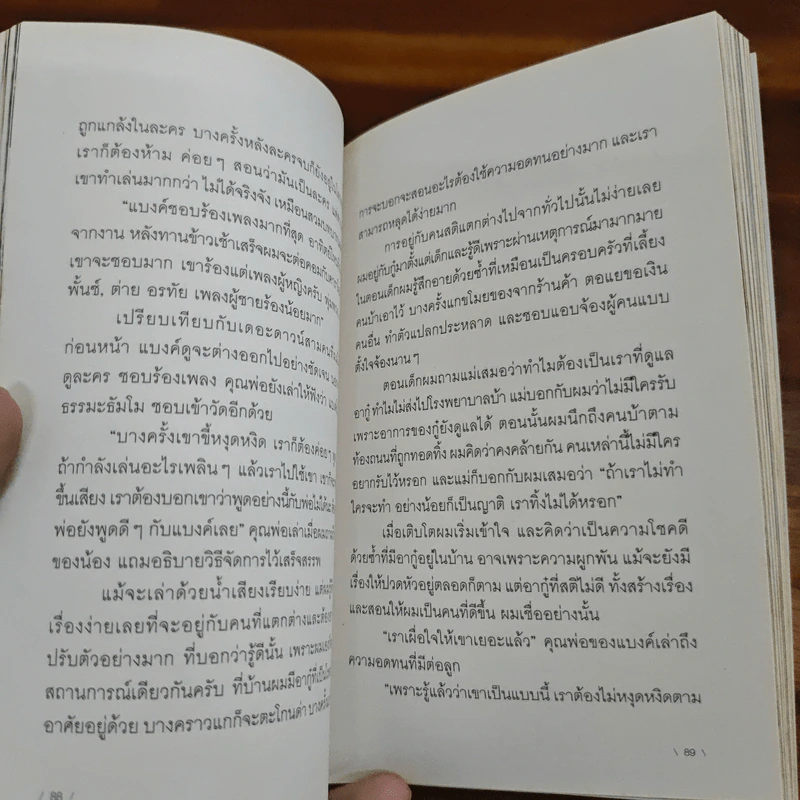 ถูกแกล้งในละคร บางครั้งหลังละครจบก็ยังอยู่
เราก็ต้องห้าม ค่อยๆ สอนว่ามันเป็นละคร
เขาทำเล่นมากกว่า ไม่ได้จริงจัง เหมือนสวมบทบาท
"แบงค์ชอบร้องเพลงมากที่สุด
จากงาน หลังทานข้าวเช้าเสร็จผมจะต่อคอม
เขาจะชอบมาก เขาร้องแต่เพลงผู้หญิงครับ
พั้นช์, ต่าย อรทัย เพลงผู้ชายร้องน้อยมาก"
เปรียบเทียบกับเดอะดาวน์สามคน
ก่อนหน้า แบงค์ดูจะต่างออกไปอย่างชัดเจน
ดูละคร ชอบร้องเพลง คุณพ่อยังเล่าให้ฟังว่า
ธรรมะธัมโม ชอบเข้าวัดอีกด้วย
"บางครั้งเขาขี้หงุดหงิด เราก็ต้องค่อยๆ
ถ้ากำลังเล่นอะไรเพลินๆ แล้วเราไปใช้เขา
ขึ้นเสียง เราต้องบอกเขาว่าพูดอย่างนี้กับพ่อไม่ได้นะ
พ่อยังพูดดีๆ กับแบงค์เลย" คุณพ่อเล่าเมื่อผมถาม
ของน้อง แถมอธิบายวิธีจัดการไว้เสร็จสรรพ
แม้จะเล่าด้วยน้ำเสียงเรียบง่าย
เรื่องง่ายเลยที่จะอยู่กับคนที่แตกต่างและต้อง
ปรับตัวอย่างมาก ที่บอกว่ารู้ดีนั้น เพราะผม
สถานการณ์เดียวกันครับ ที่บ้านผมมีอากู๋ที่เป็น
อาศัยอยู่ด้วย บางคราวแกก็จะตะโกนด่า
/ 88 /
การจะบอกจะสอนอะไรต้องใช้ความอดทนอย่างมาก และเรา
สามารถหลุดได้ง่ายมาก
การอยู่กับคนสติแตกต่างไปจากทั่วไปนั้นไม่ง่ายเลย
ผมอยู่กับกู๋มาตั้งแต่เด็กและรู้ดีเพราะผ่านเหตุการณ์มามากมาย
ในตอนเด็กผมรู้สึกอายด้วยซ้ำที่เหมือนเป็นครอบครัวที่เลี้ยง
คนบ้าเอาไว้ บางครั้งแกขโมยของจากร้านค้า ตอแยขอเงิน
คนอื่น ทำตัวแปลกประหลาด และชอบแอบจ้องผู้คนแบบ
ตั้งใจจ้องนานๆ
ตอนเด็กผมถามแม่เสมอว่าทำไมต้องเป็นเราที่ดูแล
อากู๋ ทำไมไม่ส่งไปโรงพยาบาลบ้า แม่บอกกับผมว่าไม่มีใครรับ
เพราะอาการของกู๋ยังดูแลได้ ตอนนั้นผมนึกถึงคนบ้าตาม
ท้องถนนที่ถูกทอดทิ้ง ผมคิดว่าคงคล้ายกัน คนเหล่านี้ไม่มีใคร
อยากรับไว้หรอก และแม่ก็บอกกับผมเสมอว่า "ถ้าเราไม่ทำ
ใครจะทำ อย่างน้อยก็เป็นญาติ เราทิ้งไม่ได้หรอก"
เมื่อเติบโตผมเริ่มเข้าใจ และคิดว่าเป็นความโชคดี
ด้วยซ้ำที่มีอากู๋อยู่ในบ้าน อาจเพราะความผูกพัน แม้จะยังมี
เรื่องให้ปวดหัวอยู่ตลอดก็ตาม แต่อากู๋ที่สติไม่ดี ทั้งสร้างเรื่อง
และสอนให้ผมเป็นคนที่ดีขึ้น ผมเชื่ออย่างนั้น
"เราเผื่อใจให้เขาเยอะแล้ว" คุณพ่อของแบงค์เล่าถึง
ความอดทนที่มีต่อลูก
"เพราะรู้แล้วว่าเขาเป็นแบบนี้ เราต้องไม่หงุดหงิดตาม
\ 89 \